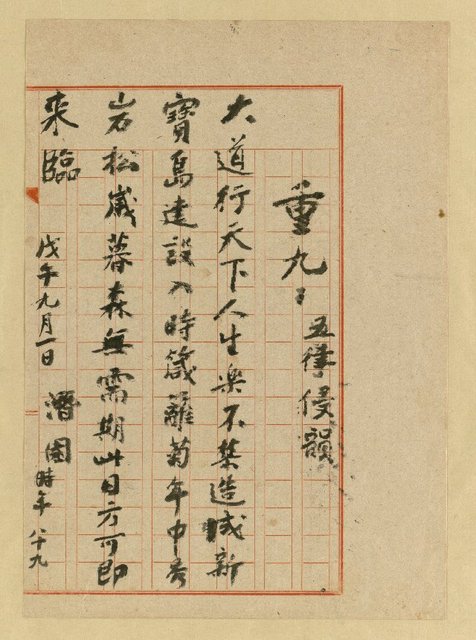 重九 五律侵韻
大道行天下人生樂不禁造城新
寶島建設入時箴籬菊年中秀
岩松歲暮森無需期此日方可即
来臨 戊午九月一日 潛園時年八十九